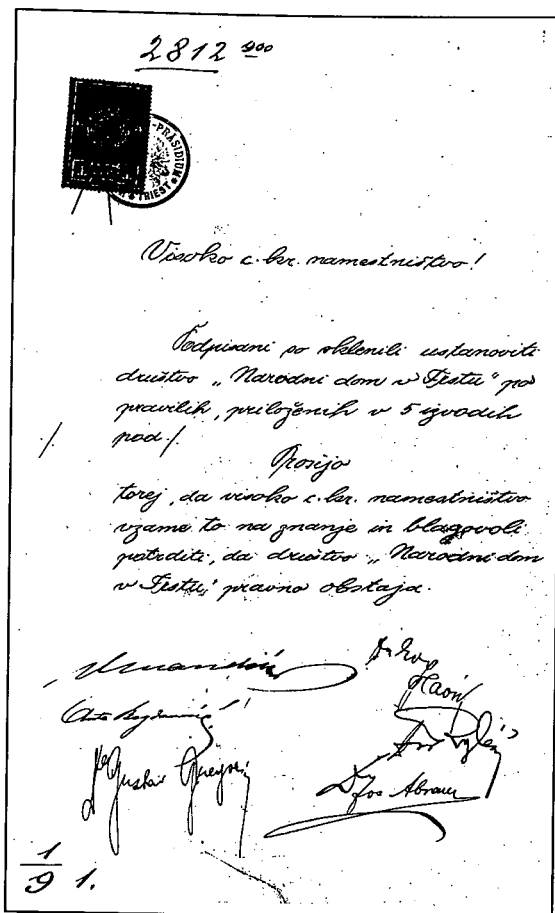 2812 900
PRÄSIDIUM
TRIEST
Visoko c. kr. namestništvo!
Podpisani so sklenili ustanoviti
društvo „Narodni dom v Trstu“ po
pravilih, priloženih v 5 izvodih
pod ./.
./.
Prosijo
torej, da visoko c. kr. namestništvo
vzame to na znanje in blagovoli
potrditi, da društvo „Narodni dom
v Trstu“ pravno obstaja.
Dr Gustav Gregorin
Dr Jos Abram
1
9 1.